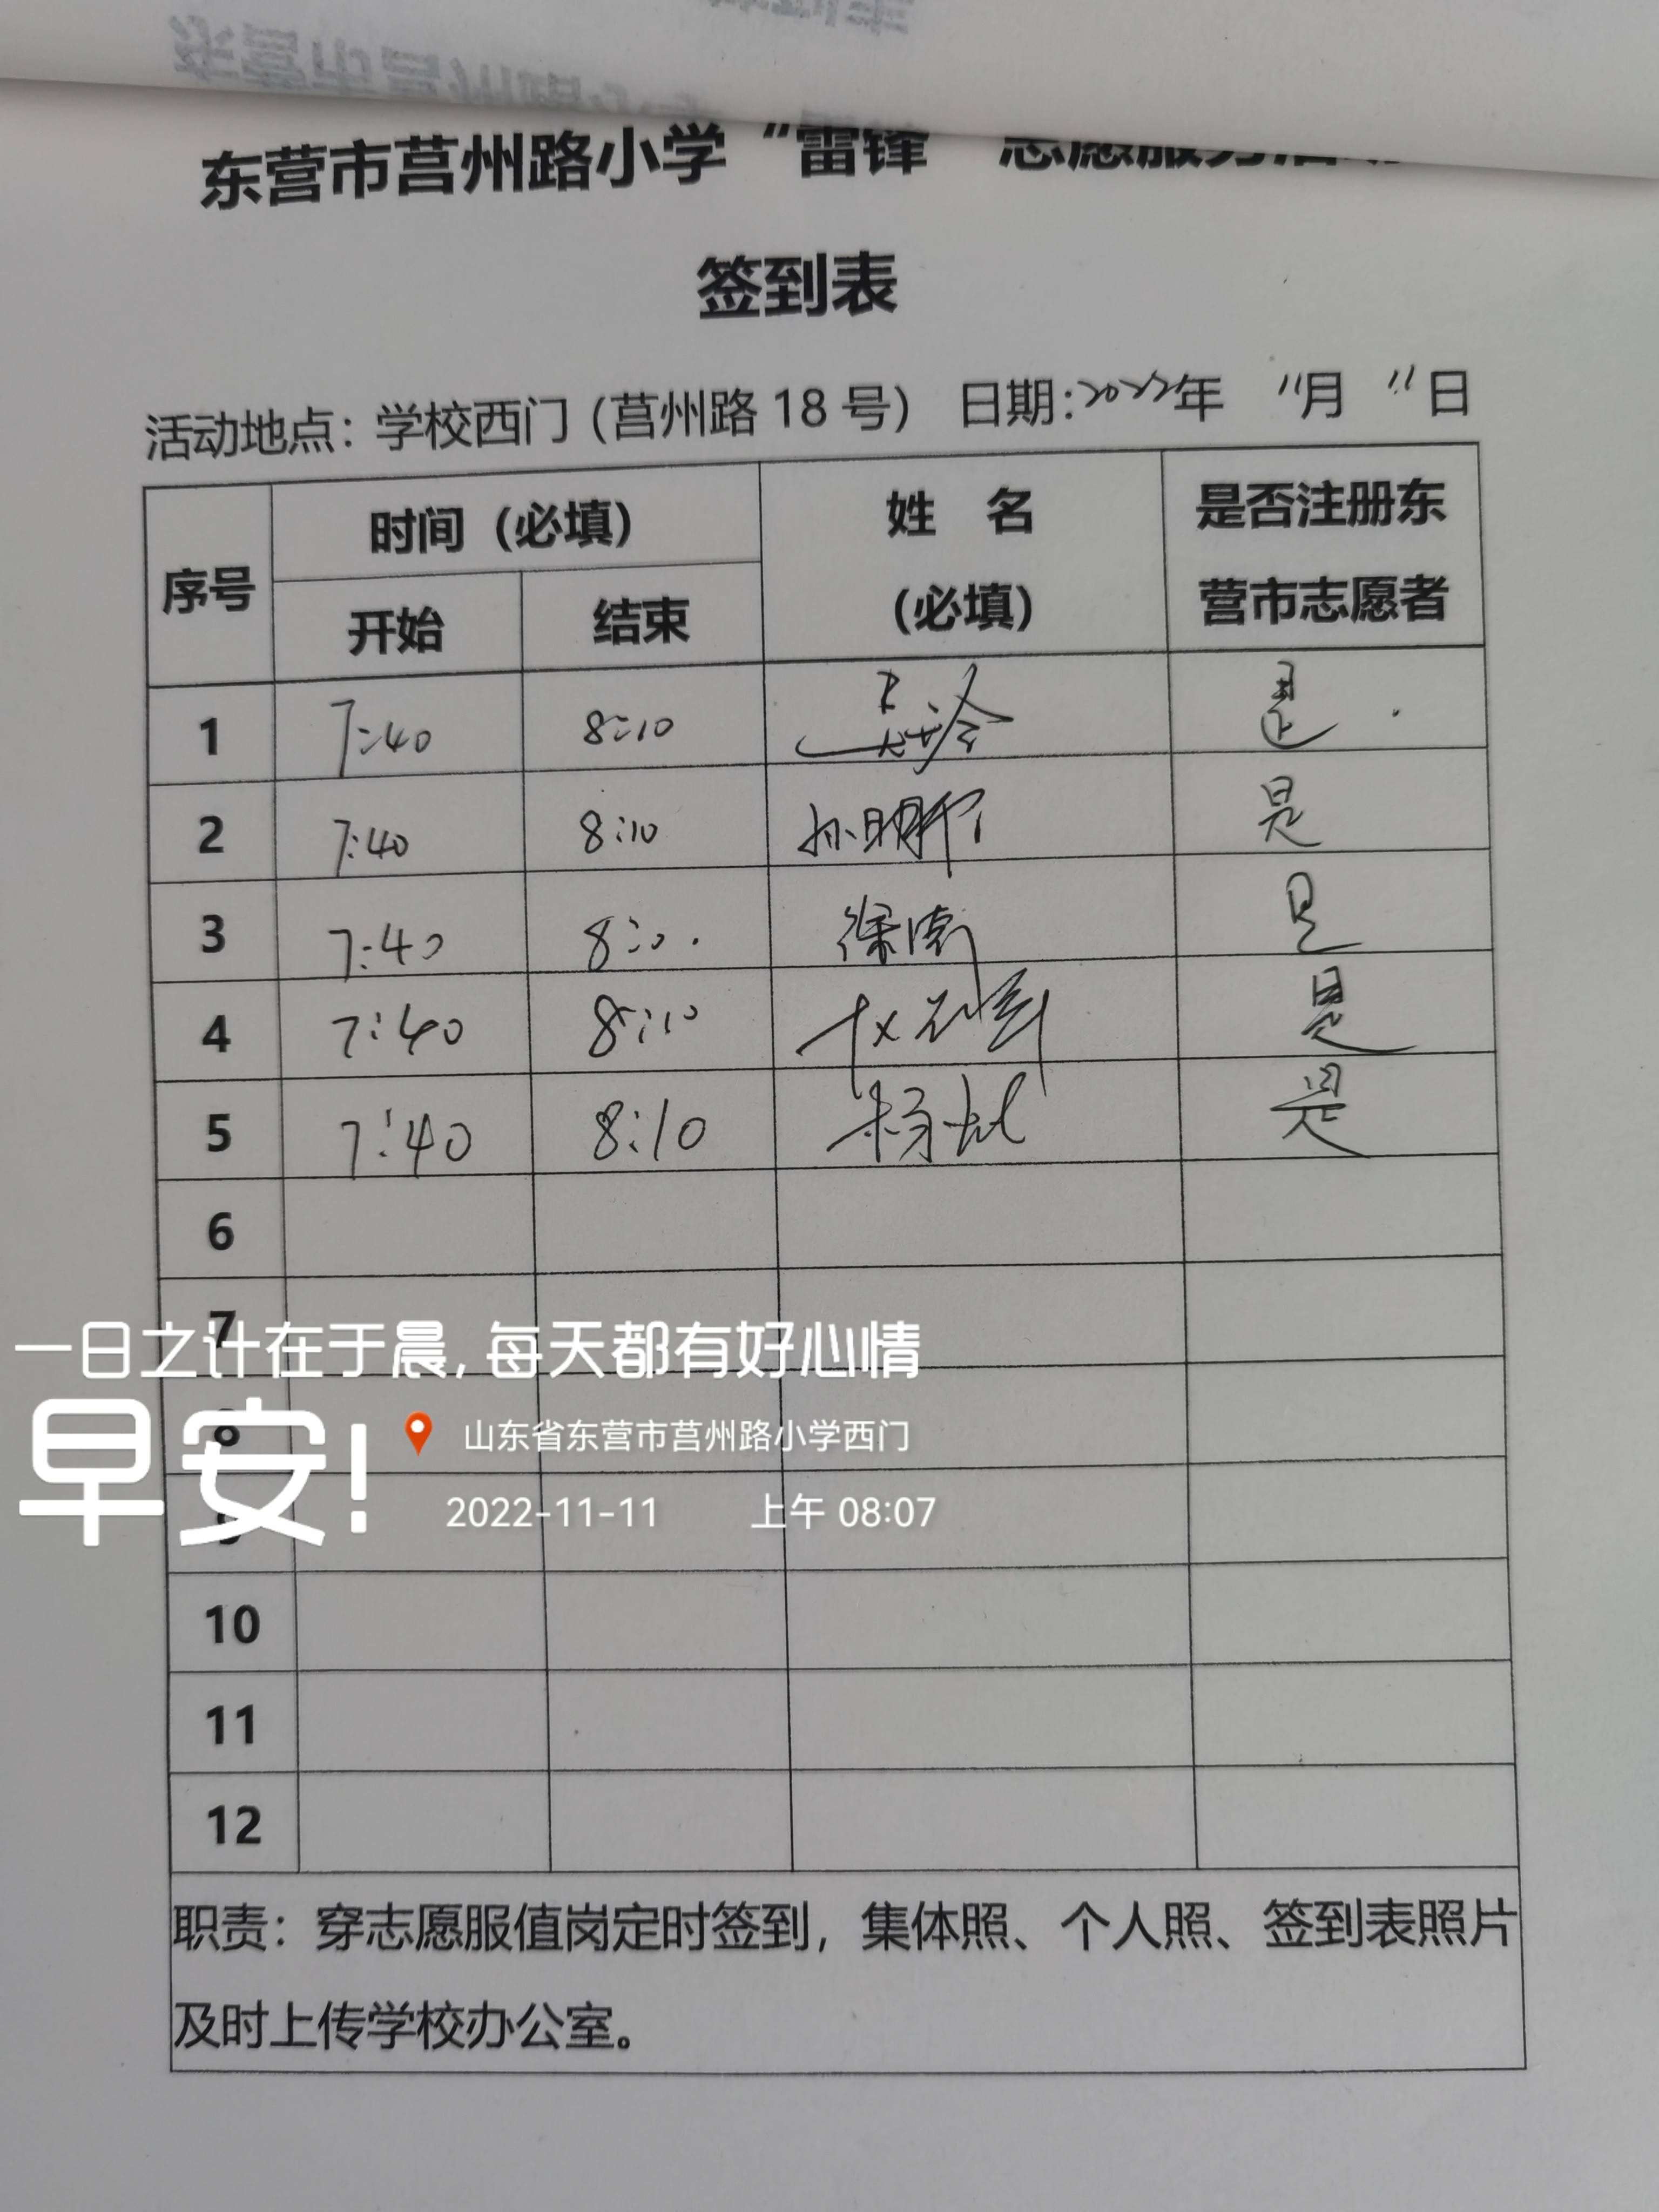 东营市莒州路小学“雷锋 志愿服务活动
签到表
活动地点：学校西门（莒州路 18 号） 日期：2022年 11月 11日
序号 时间（必填） 姓 名（必填） 是否注册东营市志愿者
开始 结束
1 7:40 8:10 是
2 7:40 8:10 是
3 7:40 是
4 7:40 8:10 是
5 7:40 8:10 是
6
7
一日之计在于晨，每天都有好心情
8
早安！
山东省东营市莒州路小学西门
9
2022-11-11 上午 08:07
10
11
12
职责：穿志愿服值岗定时签到，集体照、个人照、签到表照片
及时上传学校办公室。